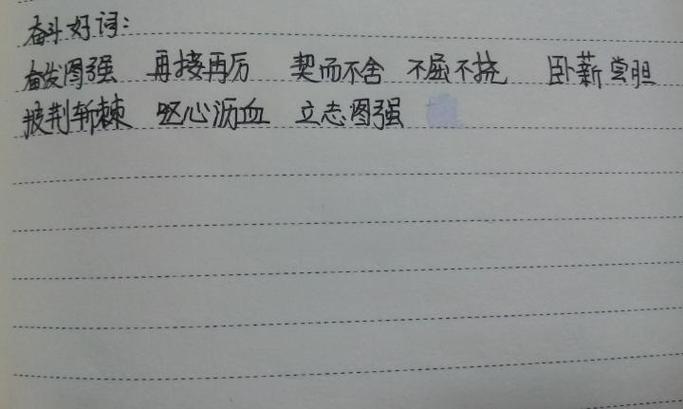 奋斗好词：
奋发图强 再接再厉 契而不舍 不屈不挠 卧薪尝胆
披荆斩棘 呕心沥血 立志图强